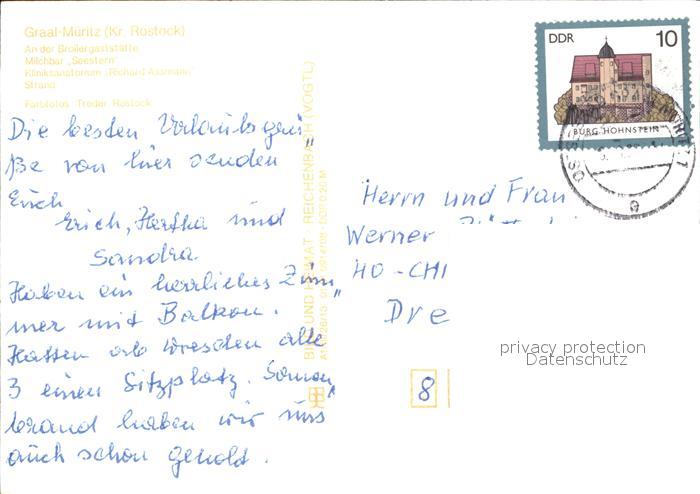 Graal-Müritz (Kr. Rostock)
An der Broilergaststätte
Milchbar „Seestern"
Kliniksanatorium „Richard Assmann"
Strand
Farbfotos Treder, Rostock
Die besten Urlaubsgrü
ße von hier senden
Euch
Erich, Hertha und
Sandra.
Haben ein herrliches Zim„
mer mit Balkon.
Hatten ab Dresden alle
3 einen Sitzplatz. Sonnen„
brand haben wir uns
auch schon geholt.
BILD UND HEIMAT · REICHENBACH (VOGTL)
DDR 10
BURG HOHNSTEIN
Herrn und Frau
Werner
HO-CHI
Dre
8
privacy protection
Datenschutz